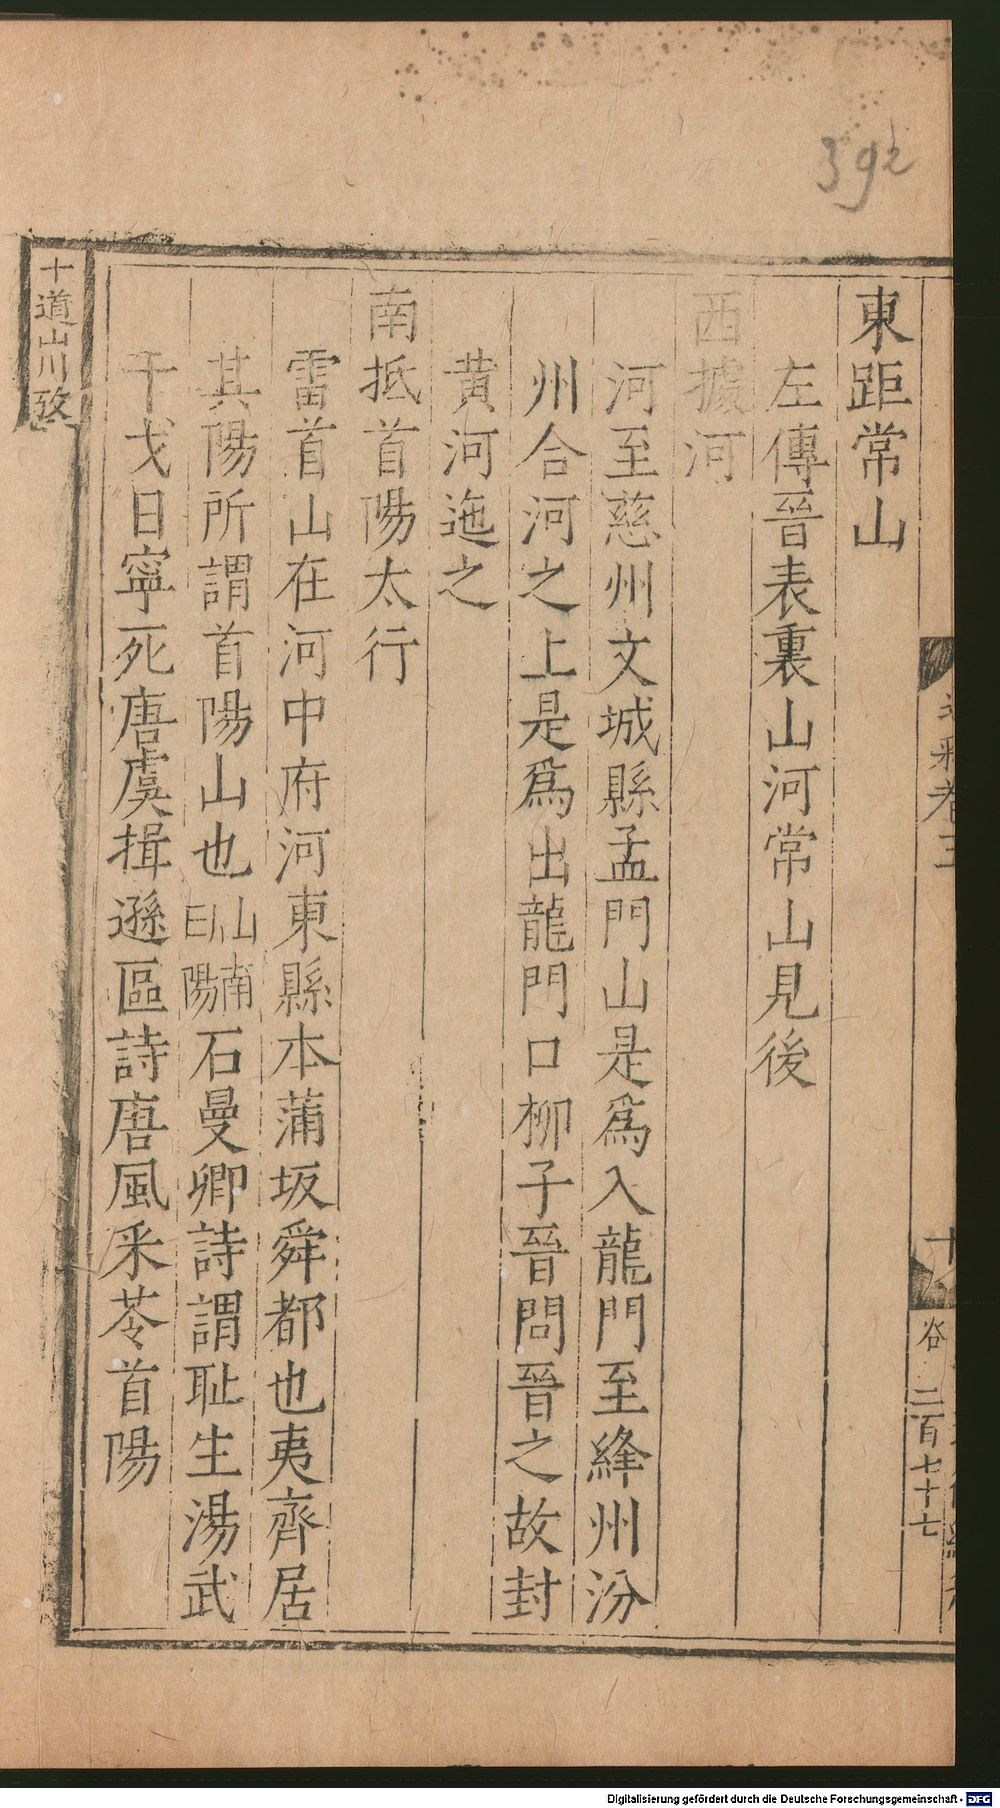 東距常山
左傳晉表裏山河常山見後
西據河
河至慈州文城縣孟門山是爲入龍門至絳州汾
州合河之上是爲出龍門口柳子晉問晉之故封
黄河迤之
南抵首陽太行
雷首山在河中府河東縣本蒲坂舜都也夷齊居
其陽所謂首陽山也山南曰陽石曼卿詩謂耻生湯武
干戈日寧死唐虞揖遜區詩唐風采苓首陽
十道山川攷
卷三
二百七十七
392
Digitalisierung gefördert durch die Deutsche Forschungsgemeinschaft - DFG